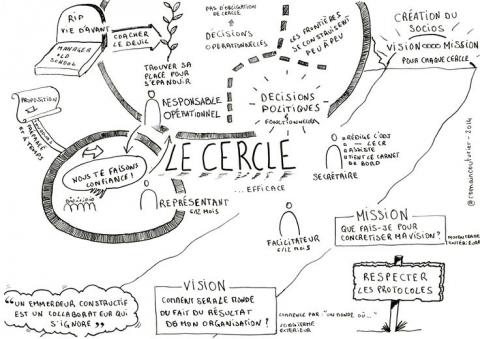 RIP
VIE D'AVANT
MANAGER
OLD
SCHOOL
COACHER
LE DEUIL
TROUVER SA
PLACE POUR
S'EPANOUIR
PAS D'OBLIGATION
DE CERCLE
DÉCISIONS
OPERATIONNELLES
LES FRONTIÈRES
SE CONSTRUISENT
PEU À PEU
CRÉATION DU
SOCIOS
VISION MISSION
POUR CHAQUE CERCLE
PROPOSITION
PRÉPARÉE
ET À
TEMPS
RESPONSABLE
OPÉRATIONNEL
DECISIONS
POLITIQUES
& FONCTIONNELLES
NOUS TE FAISONS
CONFIANCE !
LE CERCLE
... EFFICACE
REPRÉSENTANT
6/12 MOIS
RÉDIGE L'ODJ
LE CR
ASSISTE
TIENT LE CARNET
DE BORD
SECRÉTAIRE
FACILITATEUR
6/12 MOIS
@romaincouturier - 2014
MISSION
QUE FAIS-JE POUR
CONCRETISER MA VISION ?
RESPECTER
LES PROTOCOLES
"UN EMMERDEUR CONSTRUCTIF
EST UN COLLABORATEUR QUI
S'IGNORE"
VISION
COMMENT SERA LE MONDE
DU FAIT DU RÉSULTAT
DE MON ORGANISATION ?
COMMENCE PAR : "UN MONDE OÙ..."
EXTÉRIEUR